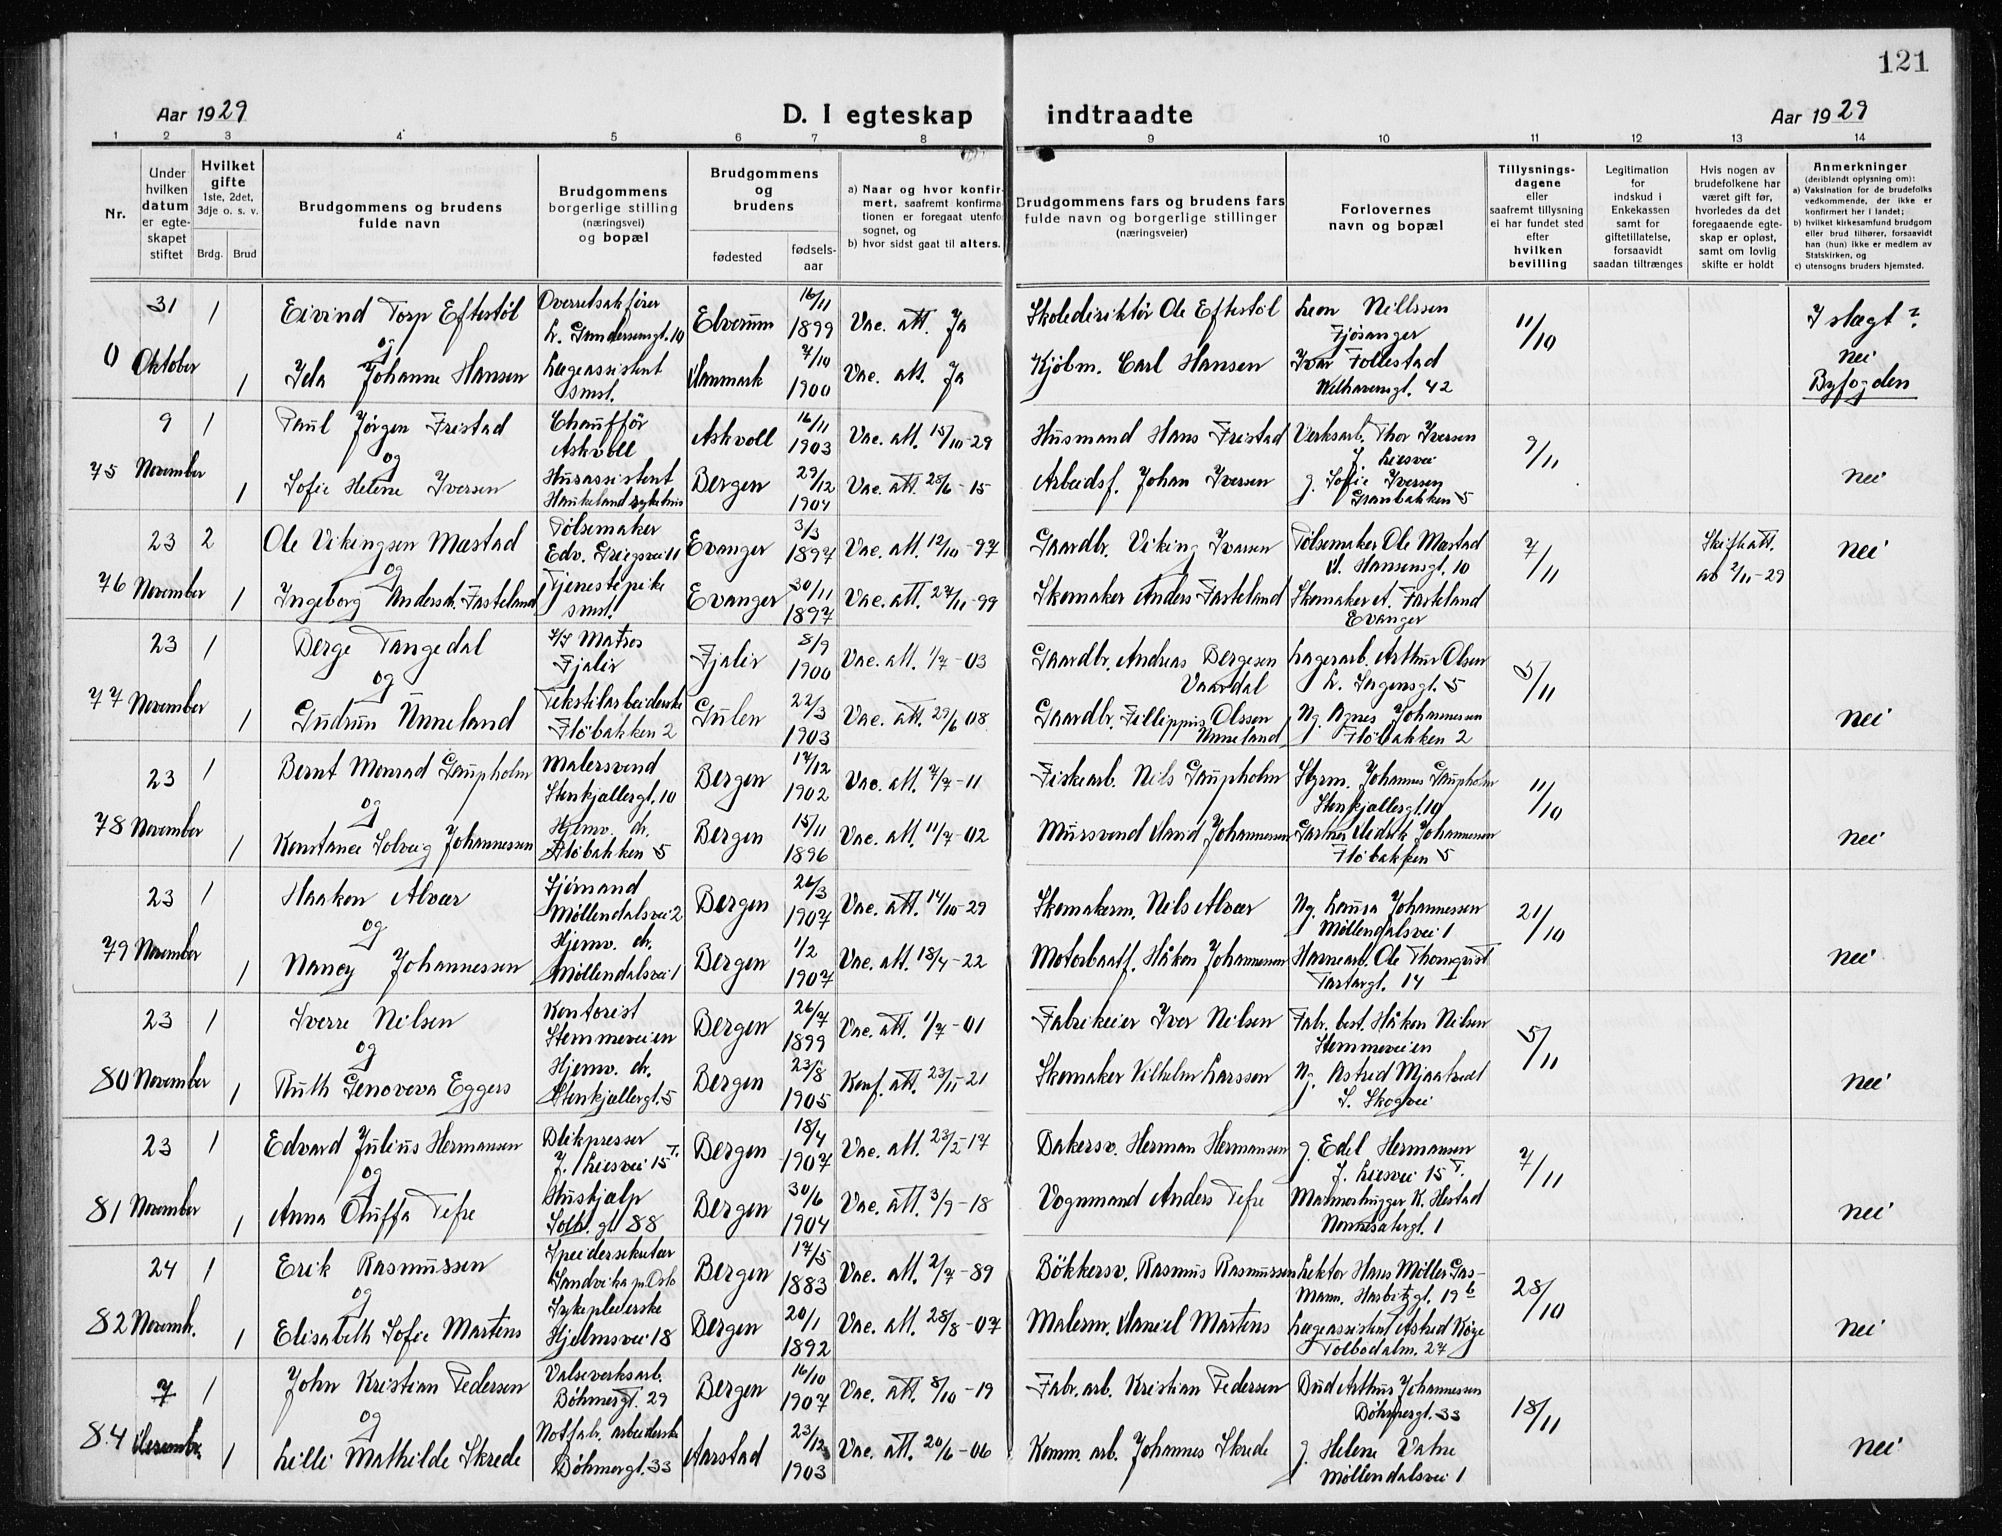 121
Aar 1929
D. I egteskap indtraadte
Aar 1929
1 2 3 4 5 6 7 8 9 10 11 12 13 14
Nr.
Under hvilken datum er egte-skapet stiftet
Hvilket gifte 1ste, 2det, 3dje o. s. v.
Brdg. Brud
Brudgommens og brudens fulde navn
Brudgommens borgerlige stilling (næringsvei) og bopæl
Brudgommens og brudens
fødested
fødsels-aar
a) Naar og hvor konfir-mert, saafremt konfirma-tionen er foregaat utenfo sognet, og
b) hvor sidst gaat til alters.
Brudgommens fars og brudens fars fulde navn og borgerlige stillinger (næringsveier)
Forlovernes navn og bopæl
Tillysnings-dagene eller saafremt tillysning ei har fundet sted efter hvilken bevilling
Legitimation for indskud i Enkekassen samt for giftetillatelse, forsaavidt saadan tiltrænges
Hvis nogen av brudefolkene har været gift før, hvorledes da det foregaaende egte-skap er opløst, samt om lovlig skifte er holdt
Anmerkninger (deriblandt oplysning om):
a) Vaksination for de brudefolks vedkommende, der ikke er konfirmert her i landet;
b) hvilket kirkesamfund brudgom eller brud tilhører, forsaavidt han (hun) ikke er medlem av Statskirken, og
c) utensogns bruders hjemsted.
31 1 Eivind Torp Eftestøl Overretsakfører L. Gundersensgt. 10 Elverum 16/11 1899 Vac. att. Ja Skoledirektør Ole Eftestøl Leon Nillssen Fjøsanger 11/10 I slegt? nei
0 Oktober og
1 Ida Johanne Hansen Lægeassistent smst. Danmark 7/10 1900 Vac. att. Ja Kjøbm. Carl Hansen Ivar Follestad Welhavensgt. 42 Byfogden
9 1 Paul Jørgen Fristad Chauffør Askvoll Askvoll 16/11 1903 Vac. att. 15/10-29 Husmand Hans Fristad Verksarb. Thor Iversen J. Liesvei 9/11
75 November og
1 Sofie Helene Iversen Husassistent Haukeland sykehus Bergen 29/12 1904 Vac. att. 28/6-15 Arbeidsf. Johan Iversen g. Sofie Iversen Granbakken 5 nei
23 2 Ole Vikingsen Mæstad Pølsemaker Edv. Griegsvei 11 Evanger 3/3 1897 Vac. att. 12/10-97 Gaardbr. Viking Ivarsen Pølsemaker Ole Mæstad M. Hansensgt. 10 7/11 Skifteatt. av 2/11-29 nei
76 November og
1 Ingeborg Andersdt. Fasteland Tjenestepike smst. Evanger 30/11 1897 Vac. att. 27/11-99 Skomaker Anders Fasteland Skomaker A. Fasteland Evanger
23 1 Berge Tangedal Matros Fjaler Fjaler 8/9 1900 Vac. att. 1/7-03 Gaardbr. Andreas Bergesen Vaardal Lagerarb. Arthur Olsen L. Sergensgt. 5 5/11
77 November og
1 Gudrun Unneland Tekstilarbeiderske Fløbakken 2 Gulen 22/3 1903 Vac. att. 29/6 08 Gaardbr. Fillippus Olssen Unneland Ng. Agnes Johannessen Fløbakken 2 nei
23 1 Bernt Monrad Gaupholm Malersvend Stenkjellergt. 10 Bergen 17/12 1902 Vac. att. 7/7-11 Fiskearb. Nils Gaupholm Styrm. Johannes Gaupholm Stenkjellergt. 10 11/10
78 November og
1 Konstance Solveig Johannessen Hjemv. dr. Fløbakken 5 Bergen 15/11 1896 Vac. att. 11/7-02 Mursvend Johannessen Johannessen Fløbakken 5 nei
23 1 Haakon Alvær Sjømand Møllendalsvei 2 Bergen 26/3 1907 Vac. att. 14/10-29 Skomakerm. Nils Alvær Ng. Laura Johannessen Møllendalsvei 1 21/10
79 November og
1 Nancy Johannessen Hjemv. dr. Møllendalsvei 1 Bergen 1/2 1907 Vac. att. 18/4-22 Motorbaatf. Håkon Johannessen Havnearb. Ole Thornqvist Tartargt. 14 nei
23 1 Sverre Nilsen Kontorist Stemmeveien Bergen 26/7 1899 Vac. att. 1/7-01 Fabrikeier Iver Nilsen Fabr. best. Håkon Nilsen Stemmeveien 5/11
80 November og
1 Ruth Genoveva Eggers Hjemv. dr. Stenkjellergt. 5 Bergen 23/8 1905 Konf. att. 23/11-21 Skomaker Vilhelm Larssen Ng. Astrid Mjaatvedt S. Skogvei nei
23 1 Edvard Julius Hermansen Blikpresser J. Liesvei 15 T. Bergen 18/4 1907 Vac. att. 23/2-17 Bakersv. Herman Hermansen g. Edel Hermansen J. Liesvei 15 T. 7/11
81 November og
1 Anna Oluffa Tefre Hushjælp Solb. gt 88 Bergen 30/6 1904 Vac. att. 3/9-18 Vognmand Anders Tefre Marmorhugger K. Hestad Nonnesætergt. 1 nei
24 1 Erik Rasmussen Speidersekretær Sandvika p. Oslo Bergen 17/5 1883 Vac. att. 2/7-89 Bøkkersv. Rasmus Rasmussen Lektor Hans Møller Gas-mann. Harbitzgt. 19 b 28/10
82 Novemb. og
1 Elisabeth Sofie Martens Sykepleierske Hjelmsvei 18 Bergen 20/1 1892 Vac. att. 28/8-07 Malerm. Daniel Martens Lægeassistent Astrid Køge Tolbodalm. 27 nei
7 1 John Kristian Pedersen Valseverksarb. Bøhmergt. 29 Bergen 16/10 1907 Vac. att. 8/10-19 Fabr. arb. Kristian Pedersen Bud Arthur Johannessen Bøhmergt. 33 18/11
84 Desember og
1 Lilli Mathilde Skrede Notfabr. arbeiderske Bøhmergt. 33 Aarstad 23/12 1903 Vac. att. 20/6-06 Komm. arb. Johannes Skrede g. Helene Vatne Møllendalsvei 1 nei